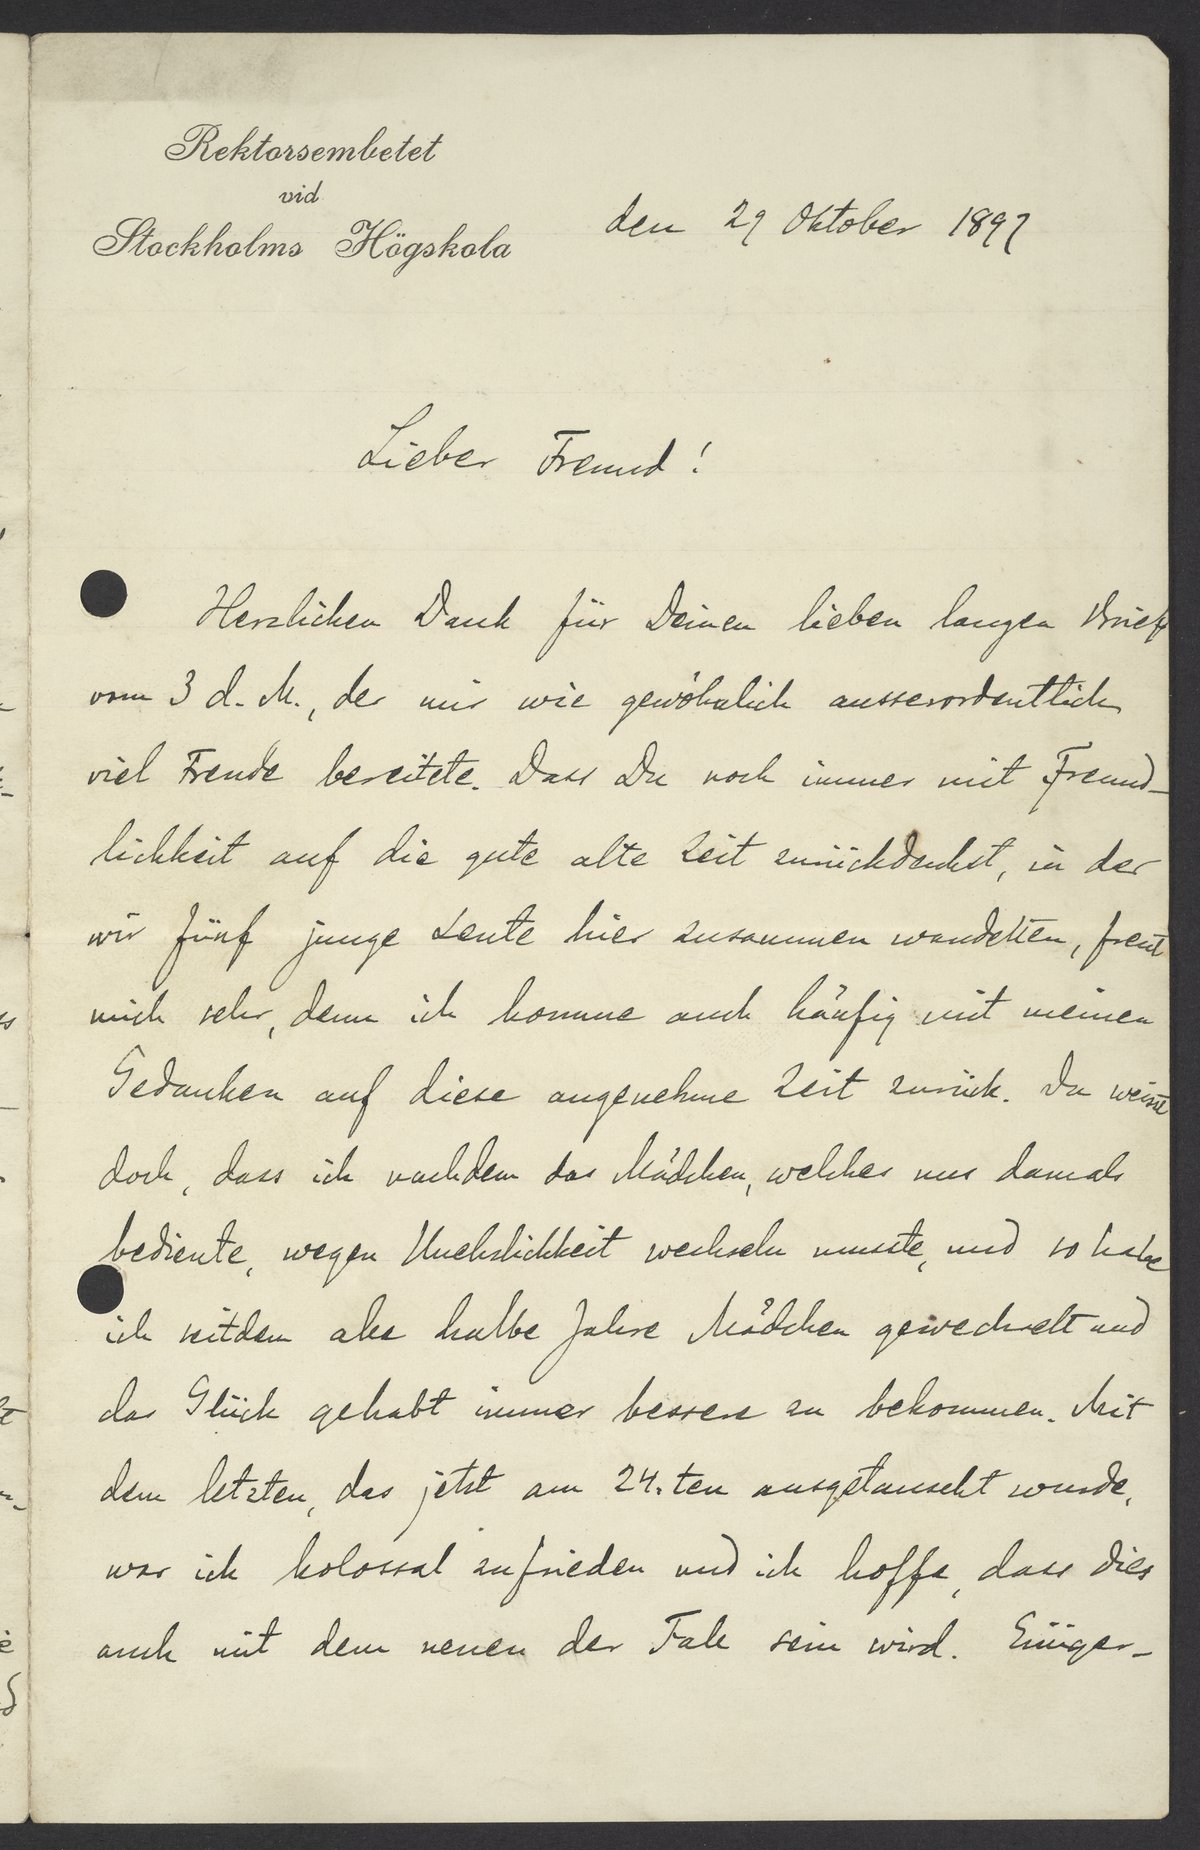 Rektorsembetet
vid
Stockholms Högskola
den 29 Oktober 1897
Lieber Freund!
Herzlichen Dank für Deinen lieben langen Brief
vom 3 d. M., der mir wie gewöhnlich ausserordentlich
viel Freude bereitete. Dass Du noch immer mit Freund-
lichkeit auf die gute alte Zeit zurückdenkst, in der
wir fünf junge Leute hier zusammen wandelten, freut
mich sehr, denn ich komme auch häufig mit meinen
Gedanken auf diese angenehme Zeit zurück. Du weisst
doch, dass ich nachdem das Mädchen, welches uns damals
bediente, wegen Unehrlichkeit wechseln musste, und so habe
ich seitdem alle halbe Jahre Mädchen gewechselt und
das Glück gehabt immer bessere zu bekommen. Mit
dem letzten, das jetzt am 24.ten ausgetauscht wurde,
war ich kolossal zufrieden und ich hoffe, dass dies
auch mit dem neuen der Fall sein wird.